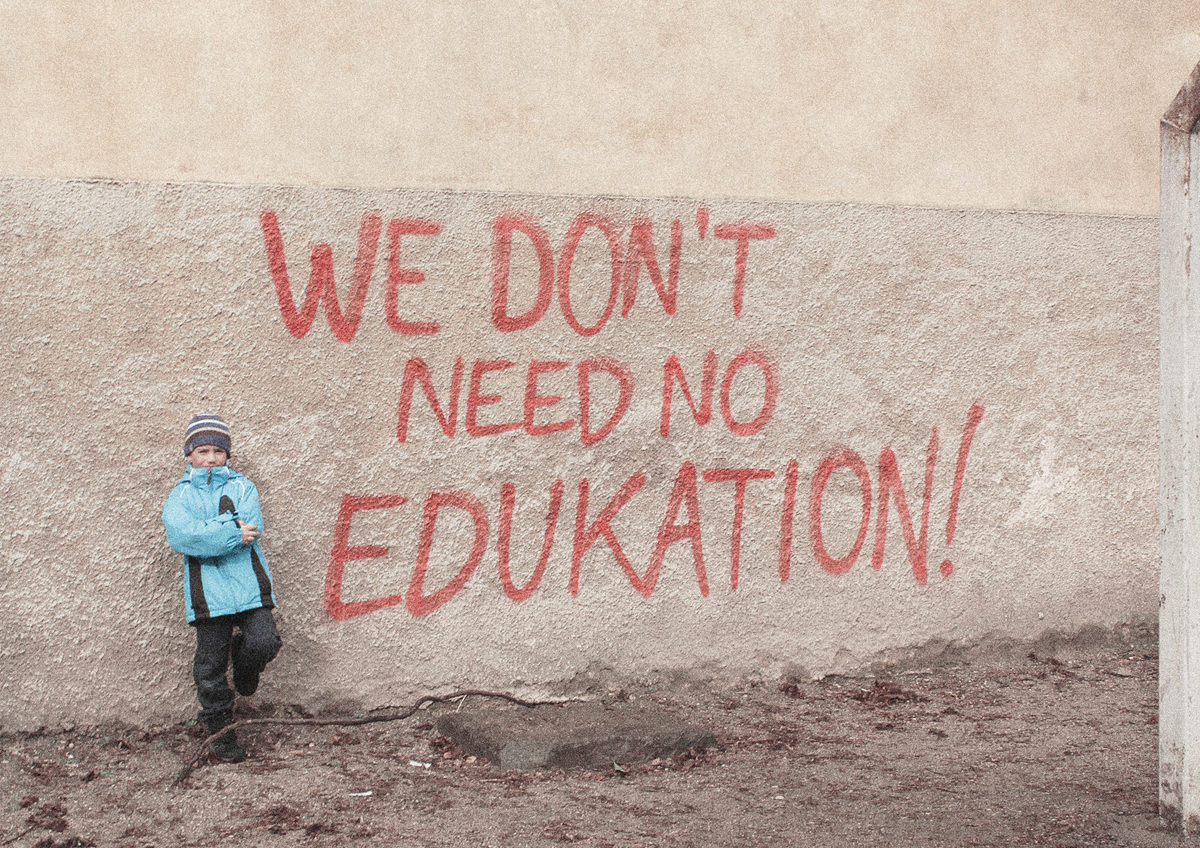 WE DON'T
NEED NO
EDUKATION!